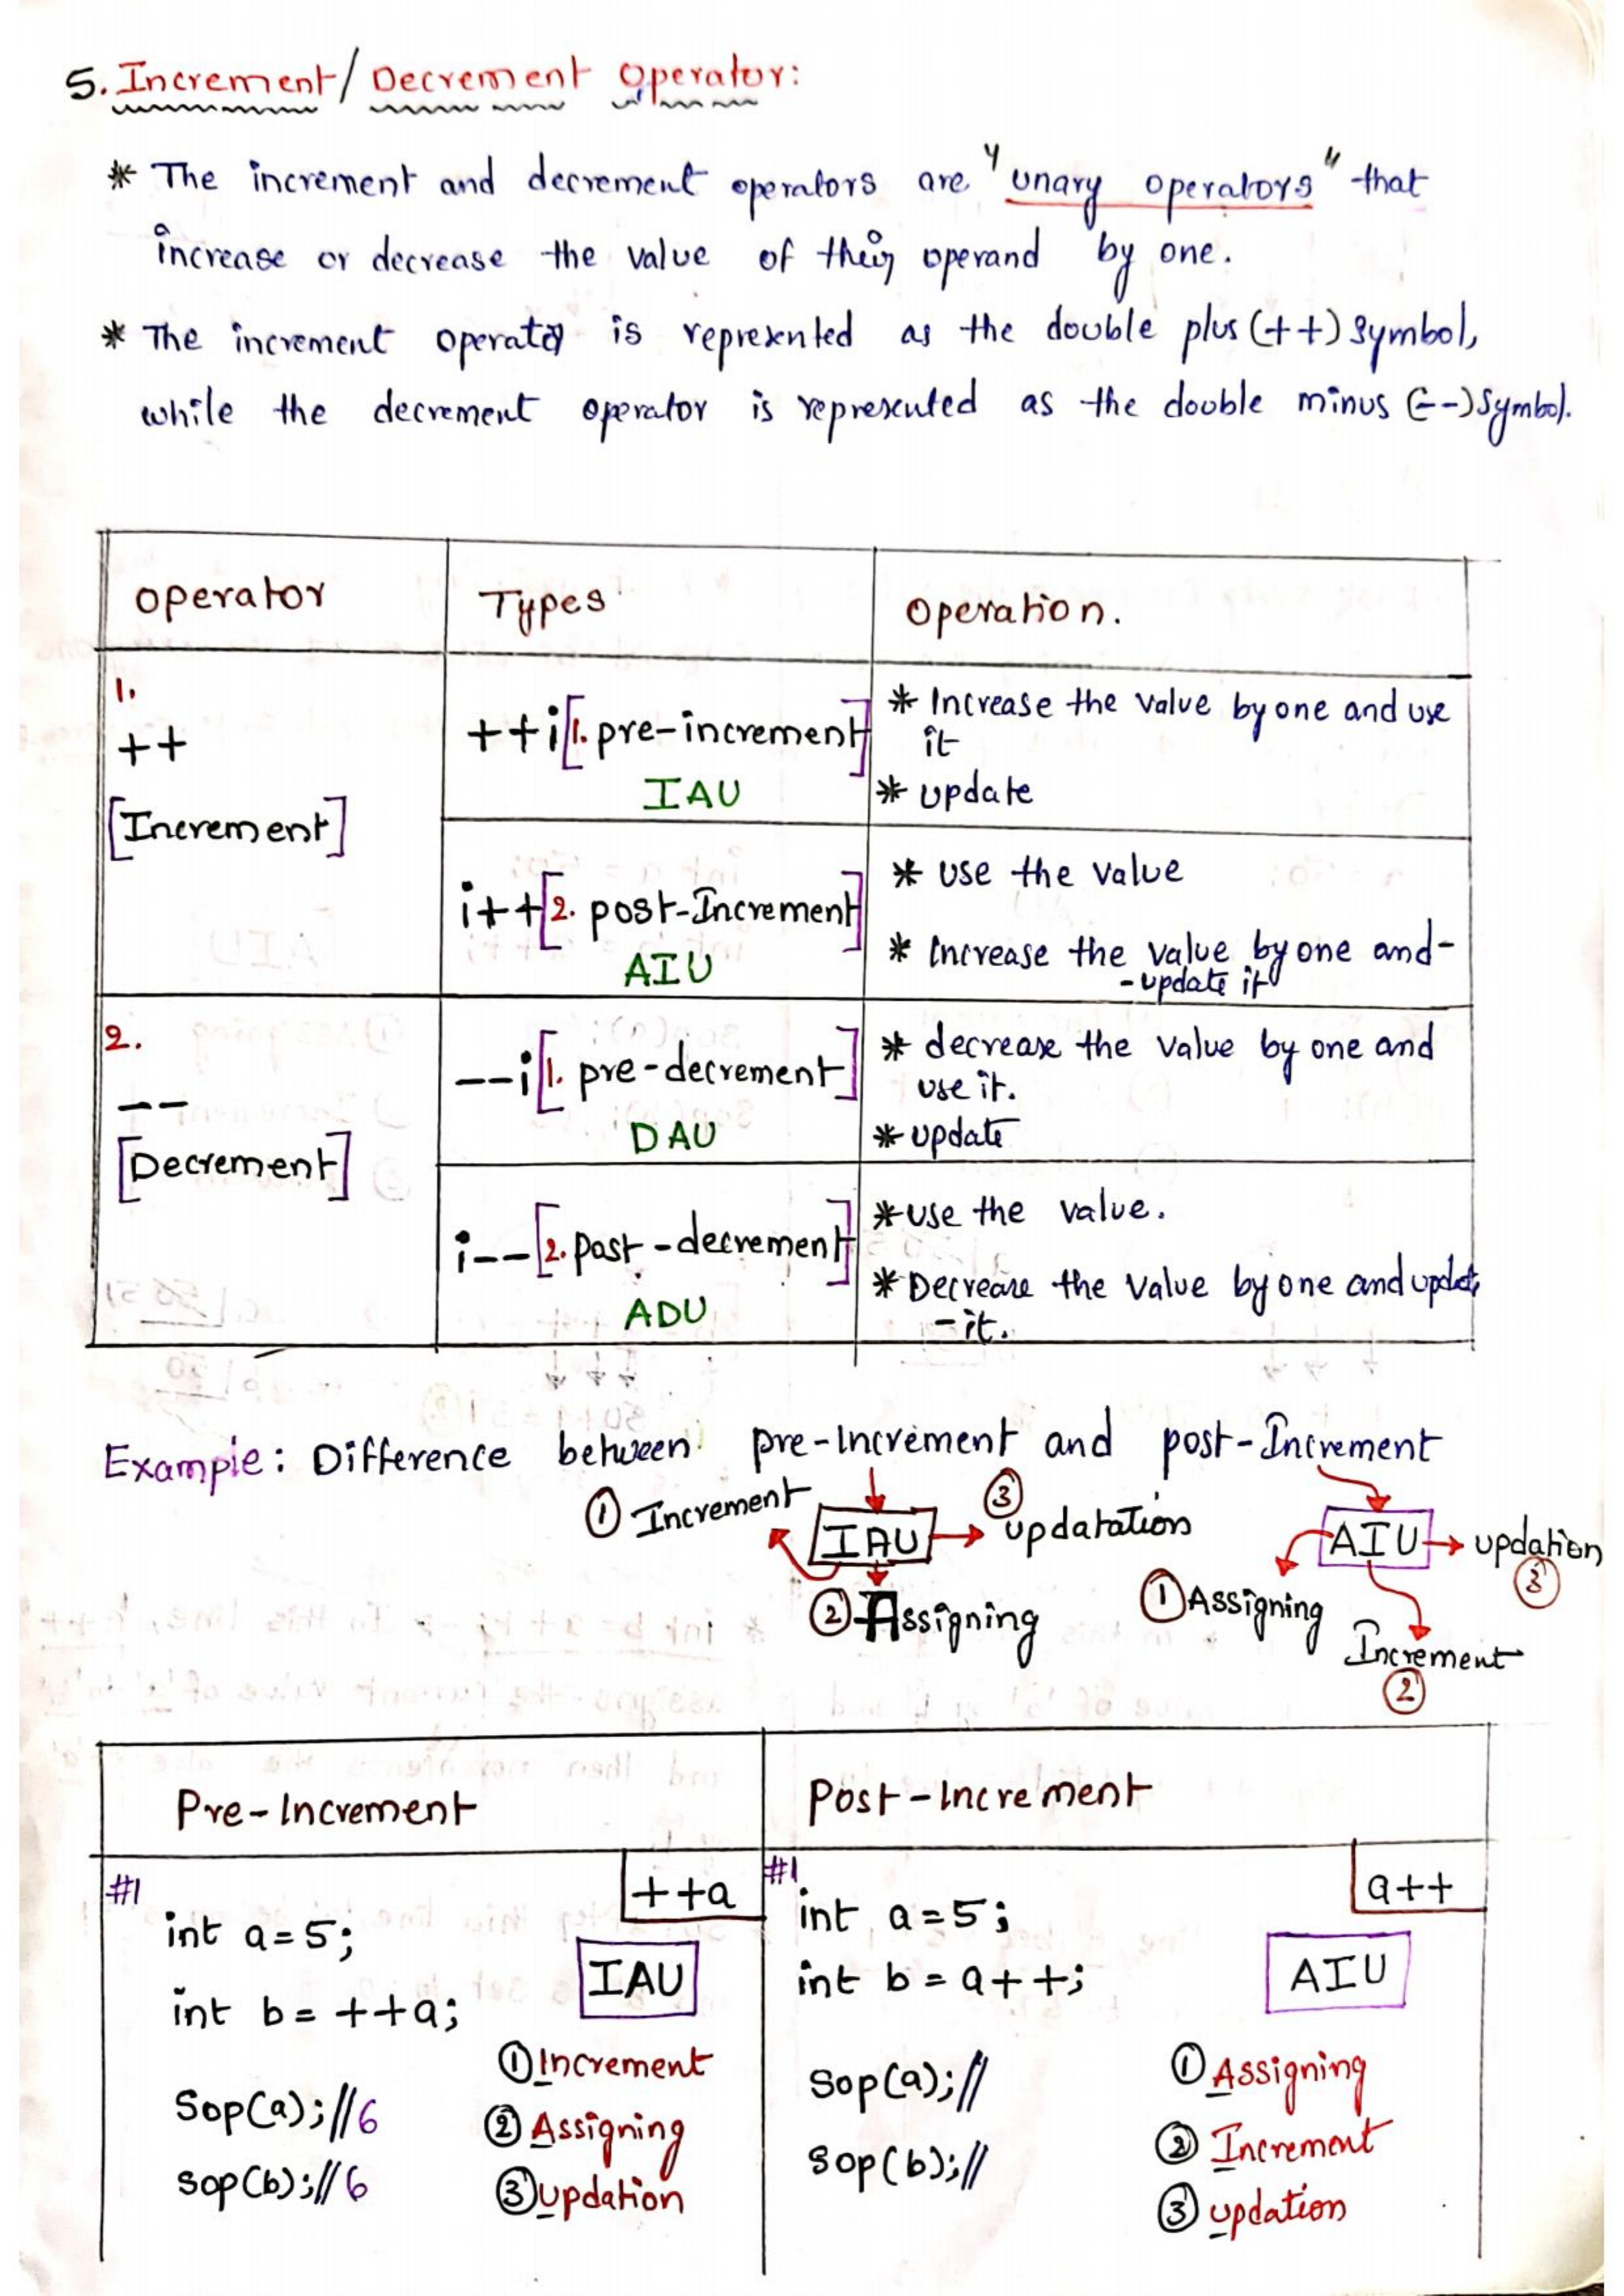 5. Increment/Decrement operator:
* The increment and decrement operators are "unary operators" that
increase or decrease the value of their operand by one.
* The increment operator is represented as the double plus (++) symbol,
while the decrement operator is represented as the double minus (--) symbol.
operator Types Operation.
1.
++
[Increment]
++i[1. pre-increment]
IAU
* Increase the value by one and use
it
* update
i++[2. post-Increment]
AIU
* use the value
* Increase the value by one and-
-update it
2.
--
[Decrement]
--i[1. pre-decrement]
DAU
* decrease the value by one and
use it.
* update
i--[2. post-decrement]
ADU
* use the value.
* Decrease the value by one and update
-it.
Example: Difference between pre-Increment and post-Increment
① Increment
IAU
③
updatation
② Assigning
AIU
updation
③
① Assigning
Increment
②
Pre-Increment Post-Increment
#1
++a
int a=5;
IAU
int b= ++a;
① Increment
Sop(a);//6
② Assigning
sop(b);//6
③ updation
#1
a++
int a=5;
int b=a++;
AIU
Sop(a);//
① Assigning
② Increment
sop(b);//
③ updation